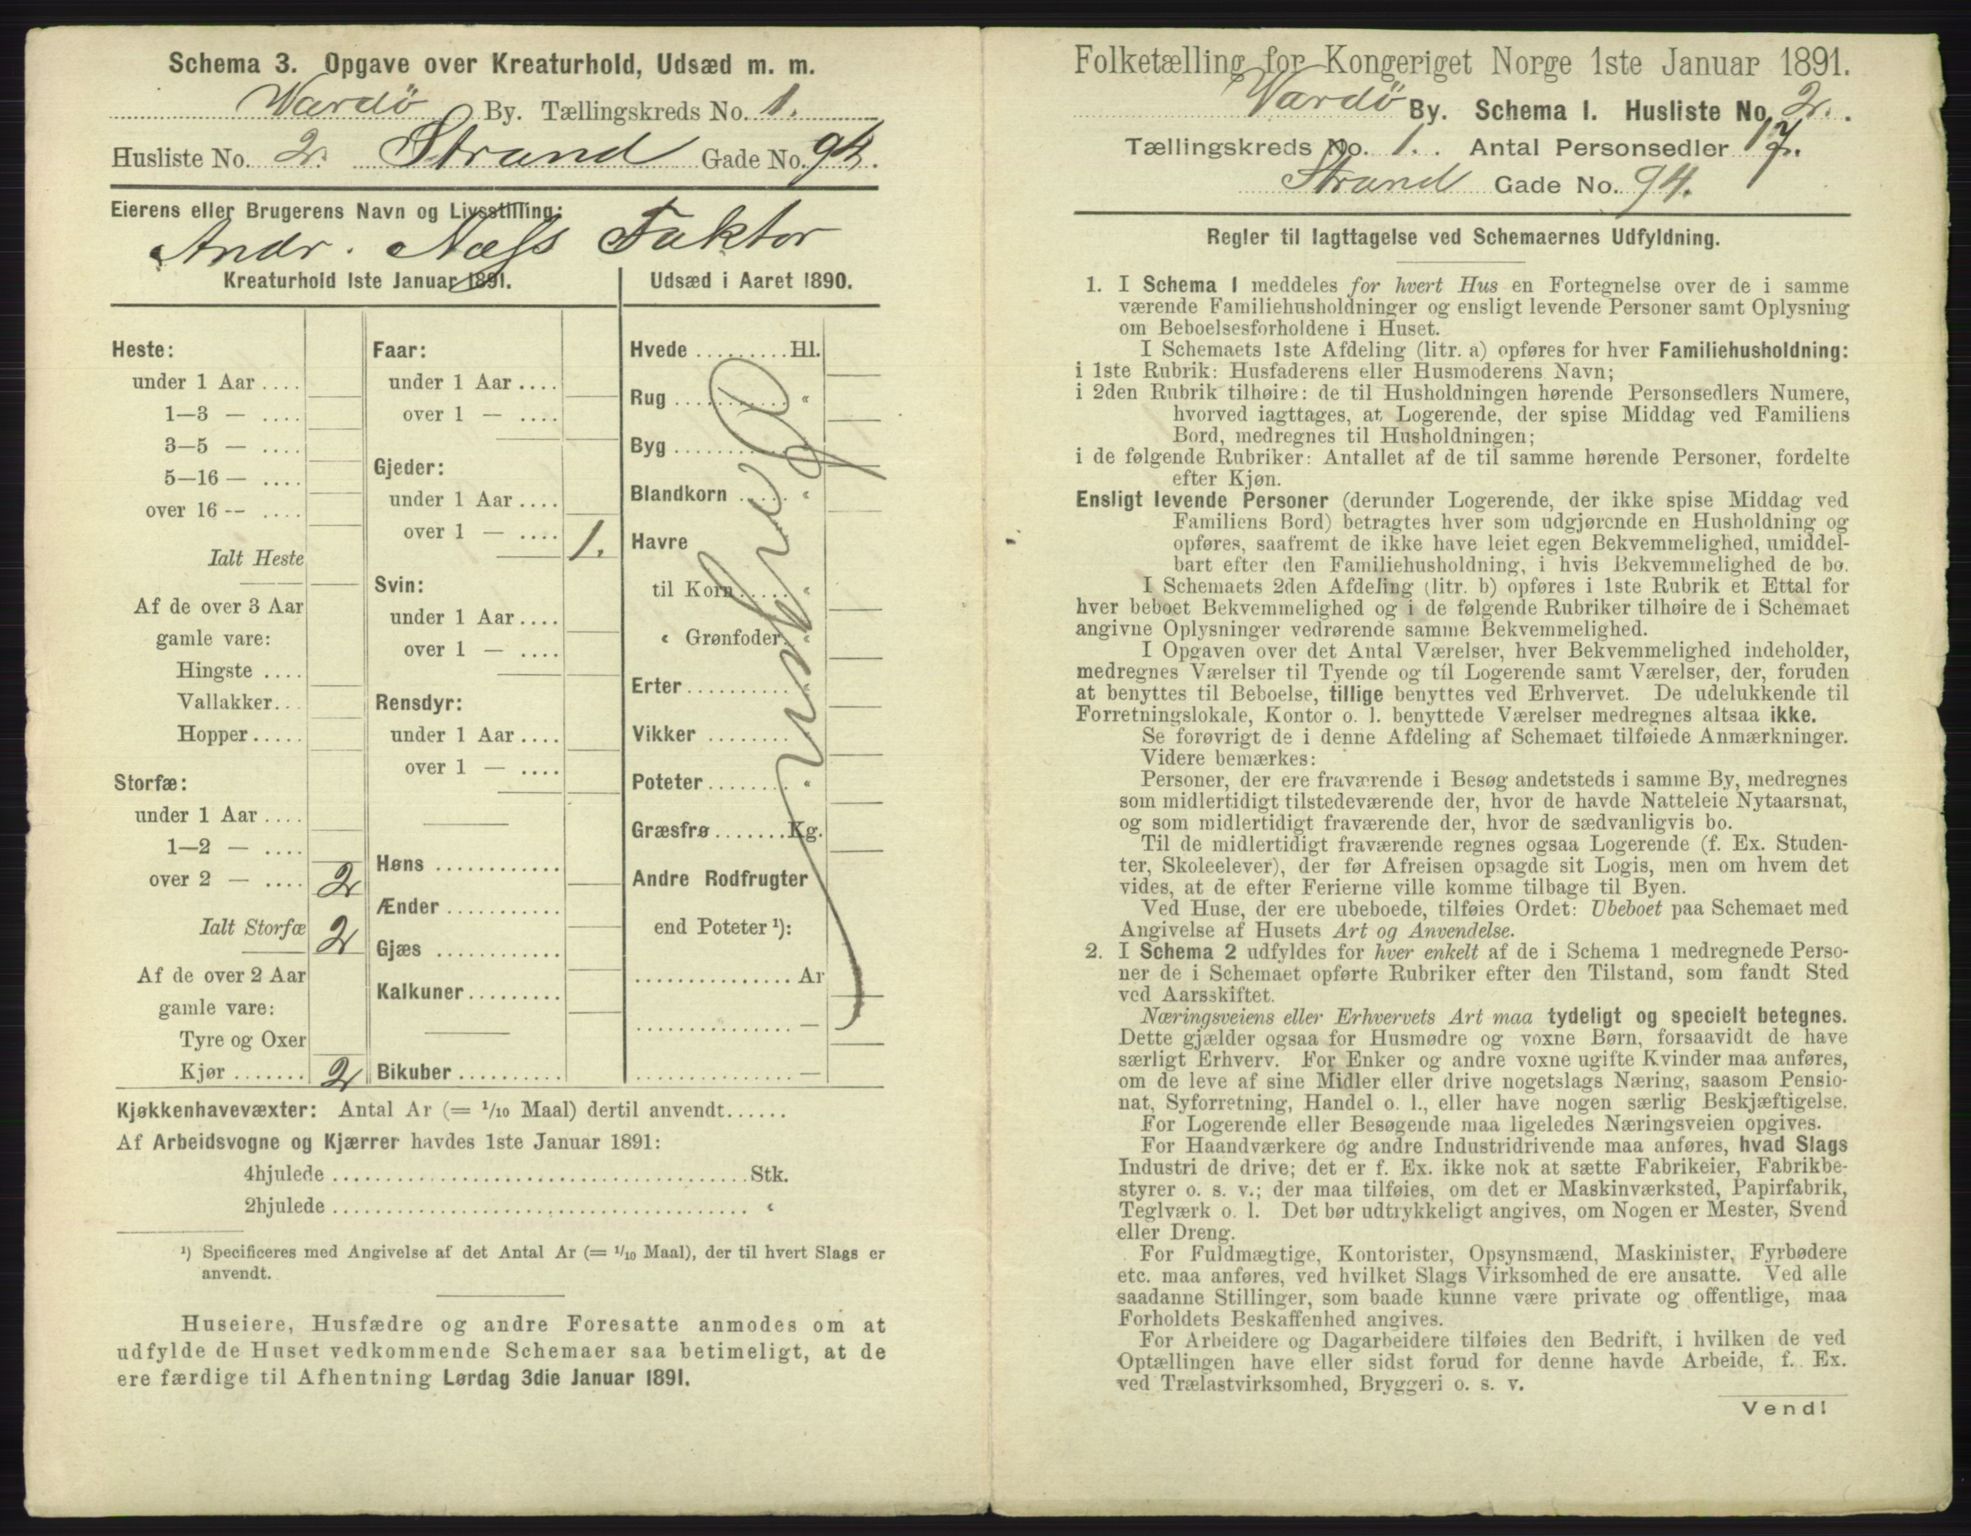 Schema 3. Opgave over Kreaturhold, Udsæd m. m.
Vardö By. Tællingskreds No. 1.
Husliste No. 2. Strand Gade No. 94.
Eierens eller Brugerens Navn og Livsstilling:
Andr. Næss Faktor
Kreaturhold 1ste Januar 1891.
Heste:
under 1 Aar ....
1—3 — ....
3—5 — ....
5—16 — ....
over 16 -- ....
Ialt Heste
Af de over 3 Aar
gamle vare:
Hingste ....
Vallakker...
Hopper.....
Storfæ:
under 1 Aar ....
1—2 — ....
over 2 — .... 2
Ialt Storfæ 2
Af de over 2 Aar
gamle vare:
Tyre og Oxer
Kjør ....... 2
Faar:
under 1 Aar ....
over 1 — ....
Gjeder:
under 1 Aar ....
over 1 — .... 1.
Svin:
under 1 Aar ....
over 1 — ....
Rensdyr:
under 1 Aar ....
over 1 — ....
Høns ............
Ænder ...........
Gjæs ............
Kalkuner.........
Bikuber..........
Udsæd i Aaret 1890.
Hvede .........Hl.
Rug ............ "
Byg ............ "
Blandkorn ...... "
Havre
til Korn...... "
" Grønfoder. "
Erter...........
Vikker ........
Poteter......... "
Græsfrø.......Kg.
Andre Rodfrugter
end Poteter ¹):
................Ar
................—
................—
Kjøkkenhavevæxter: Antal Ar (= 1/10 Maal) dertil anvendt......
Af Arbeidsvogne og Kjærrer havdes 1ste Januar 1891:
4hjulede ........................................Stk.
2hjulede ........................................ "
¹) Specificeres med Angivelse af det Antal Ar (= 1/10 Maal), der til hvert Slags er
anvendt.
Huseiere, Husfædre og andre Foresatte anmodes om at
udfylde de Huset vedkommende Schemaer saa betimeligt, at de
ere færdige til Afhentning Lørdag 3die Januar 1891.
Folketælling for Kongeriget Norge 1ste Januar 1891.
Vardö By. Schema I. Husliste No. 2.
Tællingskreds No. 1. Antal Personsedler 17.
Strand Gade No. 94.
Regler til Iagttagelse ved Schemaernes Udfyldning.
1. I Schema I meddeles for hvert Hus en Fortegnelse over de i samme
værende Familiehusholdninger og ensligt levende Personer samt Oplysning
om Beboelsesforholdene i Huset.
I Schemaets 1ste Afdeling (litr. a) opføres for hver Familiehusholdning:
i 1ste Rubrik: Husfaderens eller Husmoderens Navn;
i 2den Rubrik tilhøire: de til Husholdningen hørende Personsedlers Numere,
hvorved iagttages, at Logerende, der spise Middag ved Familiens
Bord, medregnes til Husholdningen;
i de følgende Rubriker: Antallet af de til samme hørende Personer, fordelte
efter Kjøn.
Ensligt levende Personer (derunder Logerende, der ikke spise Middag ved
Familiens Bord) betragtes hver som udgjørende en Husholdning og
opføres, saafremt de ikke have leiet egen Bekvemmelighed, umiddel-
bart efter den Familiehusholdning, i hvis Bekvemmelighed de bo.
I Schemaets 2den Afdeling (litr. b) opføres i 1ste Rubrik et Ettal for
hver beboet Bekvemmelighed og i de følgende Rubriker tilhøire de i Schemaet
angivne Oplysninger vedrørende samme Bekvemmelighed.
I Opgaven over det Antal Værelser, hver Bekvemmelighed indeholder,
medregnes Værelser til Tyende og til Logerende samt Værelser, der, foruden
at benyttes til Beboelse, tillige benyttes ved Erhvervet. De udelukkende til
Forretningslokale, Kontor o. l. benyttede Værelser medregnes altsaa ikke.
Se forøvrigt de i denne Afdeling af Schemaet tilføiede Anmærkninger.
Videre bemærkes:
Personer, der ere fraværende i Besøg andetsteds i samme By, medregnes
som midlertidigt tilstedeværende der, hvor de havde Natteleie Nytaarsnat,
og som midlertidigt fraværende der, hvor de sædvanligvis bo.
Til de midlertidigt fraværende regnes ogsaa Logerende (f. Ex. Studen-
ter, Skoleelever), der før Afreisen opsagde sit Logis, men om hvem det
vides, at de efter Ferierne ville komme tilbage til Byen.
Ved Huse, der ere ubeboede, tilføies Ordet: Ubeboet paa Schemaet med
Angivelse af Husets Art og Anvendelse.
2. I Schema 2 udfyldes for hver enkelt af de i Schema 1 medregnede Perso-
ner de i Schemaet opførte Rubriker efter den Tilstand, som fandt Sted
ved Aarsskiftet.
Næringsveiens eller Erhvervets Art maa tydeligt og specielt betegnes.
Dette gjælder ogsaa for Husmødre og voxne Børn, forsaavidt de have
særligt Erhverv. For Enker og andre voxne ugifte Kvinder maa anføres,
om de leve af sine Midler eller drive nogetslags Næring, saasom Pensio-
nat, Syforretning, Handel o. l., eller have nogen særlig Beskjæftigelse.
For Logerende eller Besøgende maa ligeledes Næringsveien opgives.
For Haandværkere og andre Industridrivende maa anføres, hvad Slags
Industri de drive; det er f. Ex. ikke nok at sætte Fabrikeier, Fabrikbe-
styrer o. s. v.; der maa tilføies, om det er Maskinværksted, Papirfabrik,
Teglværk o. l. Det bør udtrykkeligt angives, om Nogen er Mester, Svend
eller Dreng.
For Fuldmægtige, Kontorister, Opsynsmænd, Maskinister, Fyrbødere
etc. maa anføres, ved hvilket Slags Virksomhed de ere ansatte. Ved alle
saadanne Stillinger, som baade kunne være private og offentlige, maa
Forholdets Beskaffenhed angives.
For Arbeidere og Dagarbeidere tilføies den Bedrift, i hvilken de ved
Optællingen have eller sidst forud for denne havde Arbeide, f. Ex.
ved Trælastvirksomhed, Bryggeri o. s. v.
Vend!